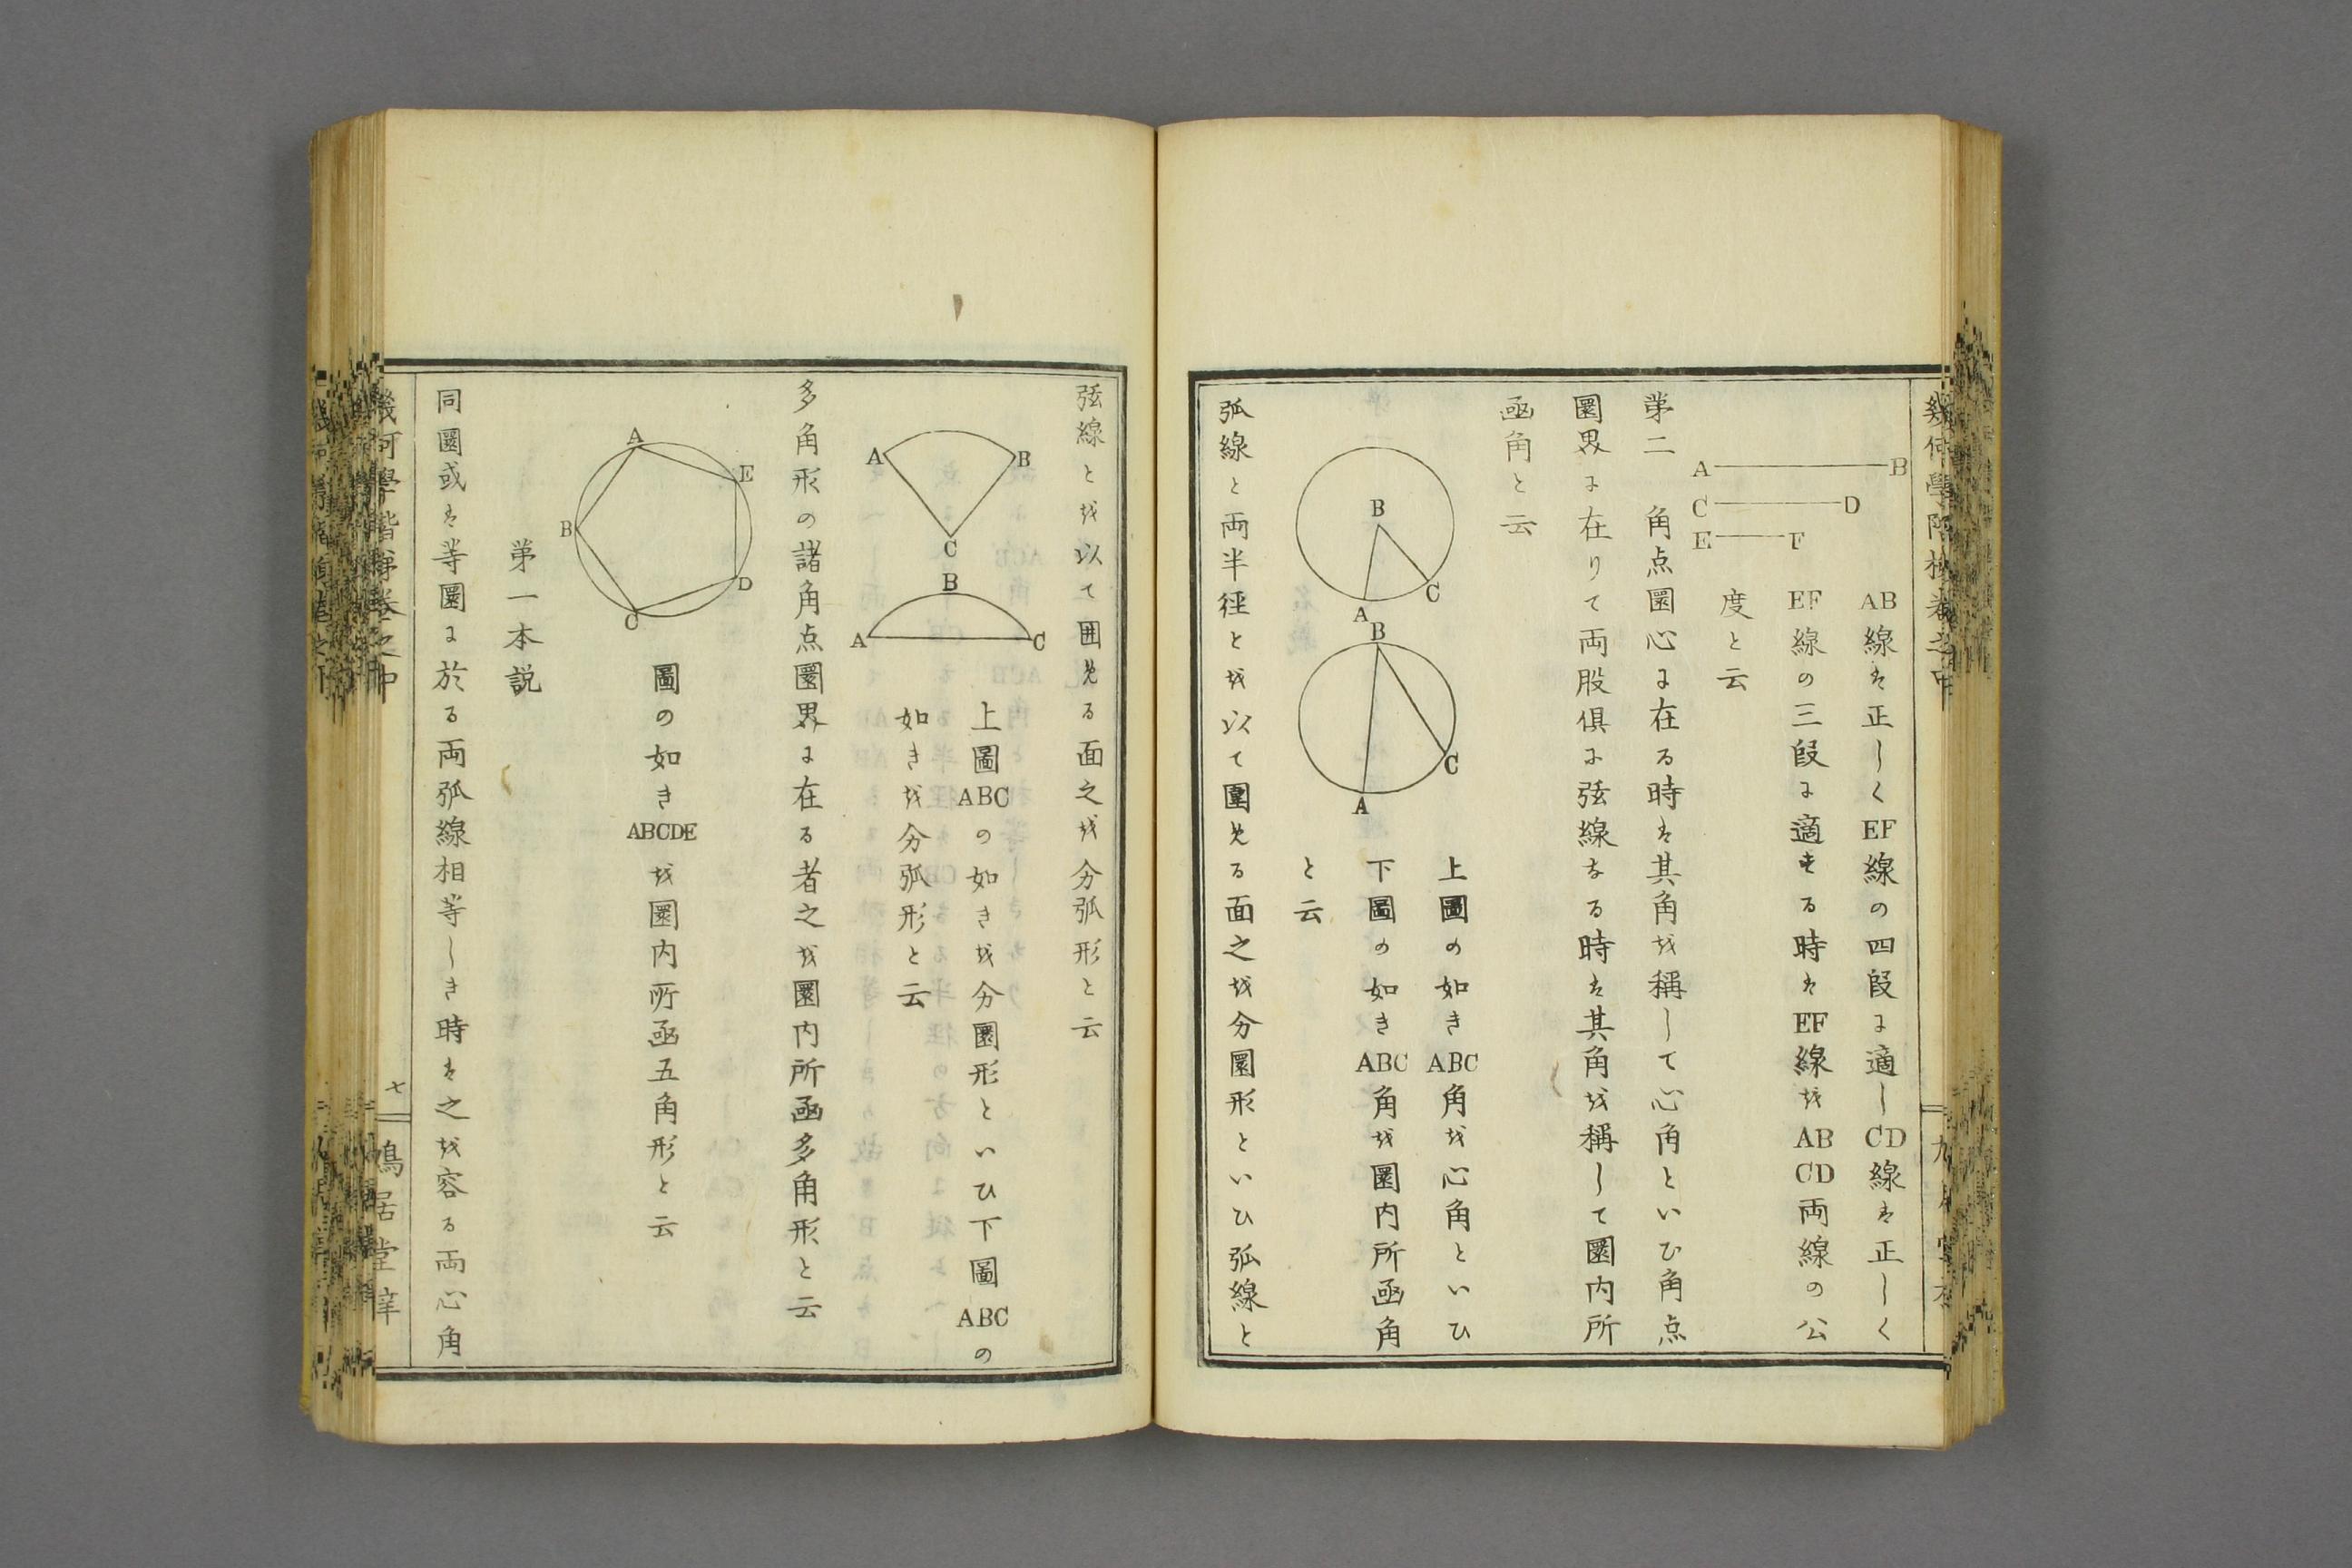 A B
C D
E F
AB線ハ正しくEF線の四段に適しCD線ハ正しく
EF線の三段に適する時ハEF線をAB CD両線の公
度と云
第二 角点圜心に在る時ハ其角を稱して心角といひ角点
圜界に在りて両股俱に弦線なる時ハ其角を稱して圜内所
函角と云
B
A
C
B
C
A
上圖の如きABC角を心角といひ
下圖の如きABC角を圜内所函角
と云
弧線と両半徑とを以て圍める面之を分圜形といひ弧線と
弦線とを以て囲める面之を分弧形と云
A B
C
B
A C
上圖ABCの如きを分圜形といひ下圖ABCの
如きを分弧形と云
多角形の諸角点圜界に在る者之を圜内所函多角形と云
A
E
B
D
C
圖の如きABCDEを圜内所函五角形と云
第一本説
同圜或ハ等圜に於る両弧線相等しき時ハ之を容る両心角
七